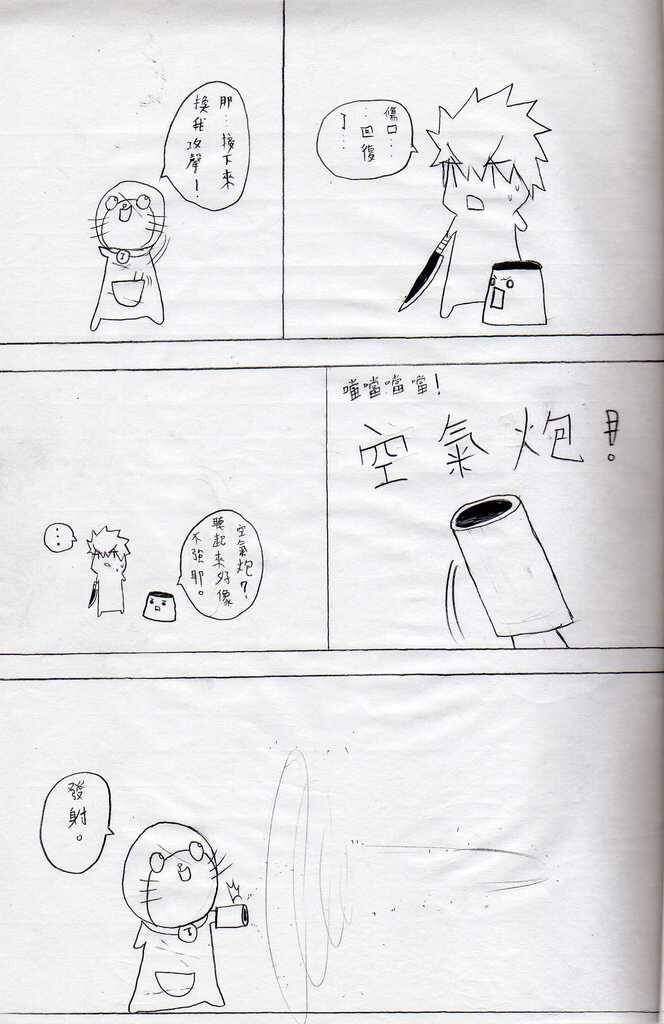 傷口…
…回復
了…
那…接下來
換我攻擊！
噹噹噹噹！
空氣炮！
空氣炮？
聽起來好像
不強耶。
…
發射。